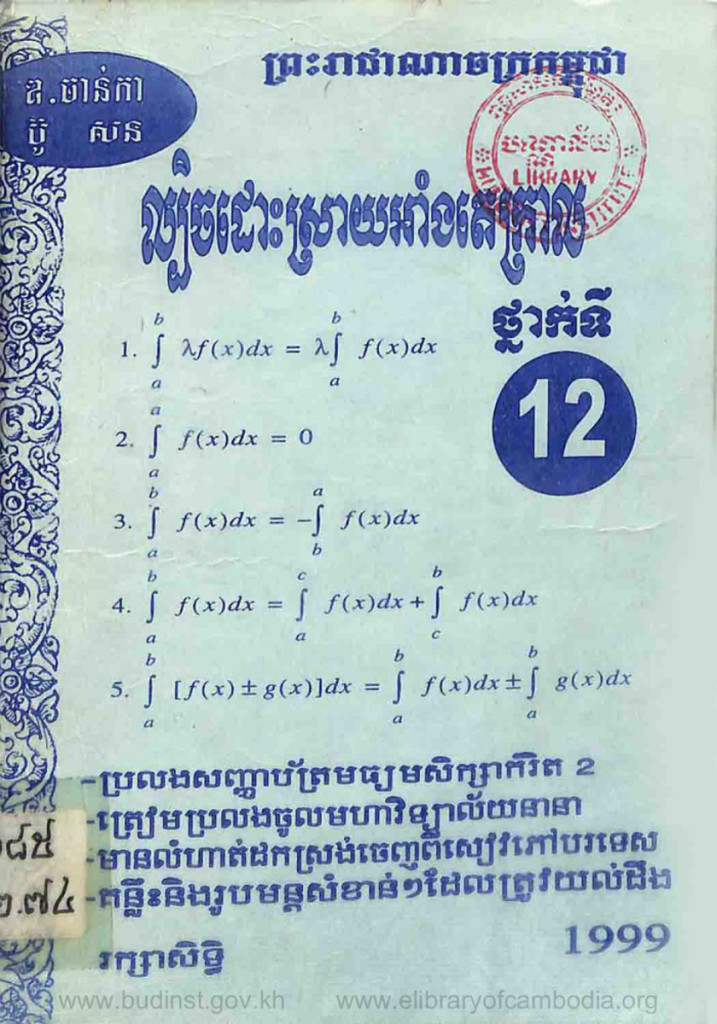 ព្រះរាជាណាចក្រកម្ពុជា
ឌ.ចាន់កា
ប៊ូ សន
បណ្ណាល័យ
LIBRARY
ល្បិចដោះស្រាយអាំងតេក្រាល
ថ្នាក់ទី
12
1. ∫ₐᵇ λf(x)dx = λ∫ₐᵇ f(x)dx
2. ∫ₐᵃ f(x)dx = 0
3. ∫ₐᵇ f(x)dx = -∫_b^a f(x)dx
4. ∫ₐᵇ f(x)dx = ∫ₐᶜ f(x)dx + ∫_c^b f(x)dx
5. ∫ₐᵇ [f(x) ± g(x)]dx = ∫ₐᵇ f(x)dx ± ∫ₐᵇ g(x)dx
-ប្រលងសញ្ញាប័ត្រមធ្យមសិក្សាកំរិត 2
-ត្រៀមប្រលងចូលមហាវិទ្យាល័យនានា
-មានលំហាត់ដកស្រង់ចេញពីសៀវភៅបរទេស
-គន្លឹះនិងរូបមន្តសំខាន់ៗដែលត្រូវយល់ដឹង
រក្សាសិទ្ធិ
1999
www.budinst.gov.kh www.elibraryofcambodia.org